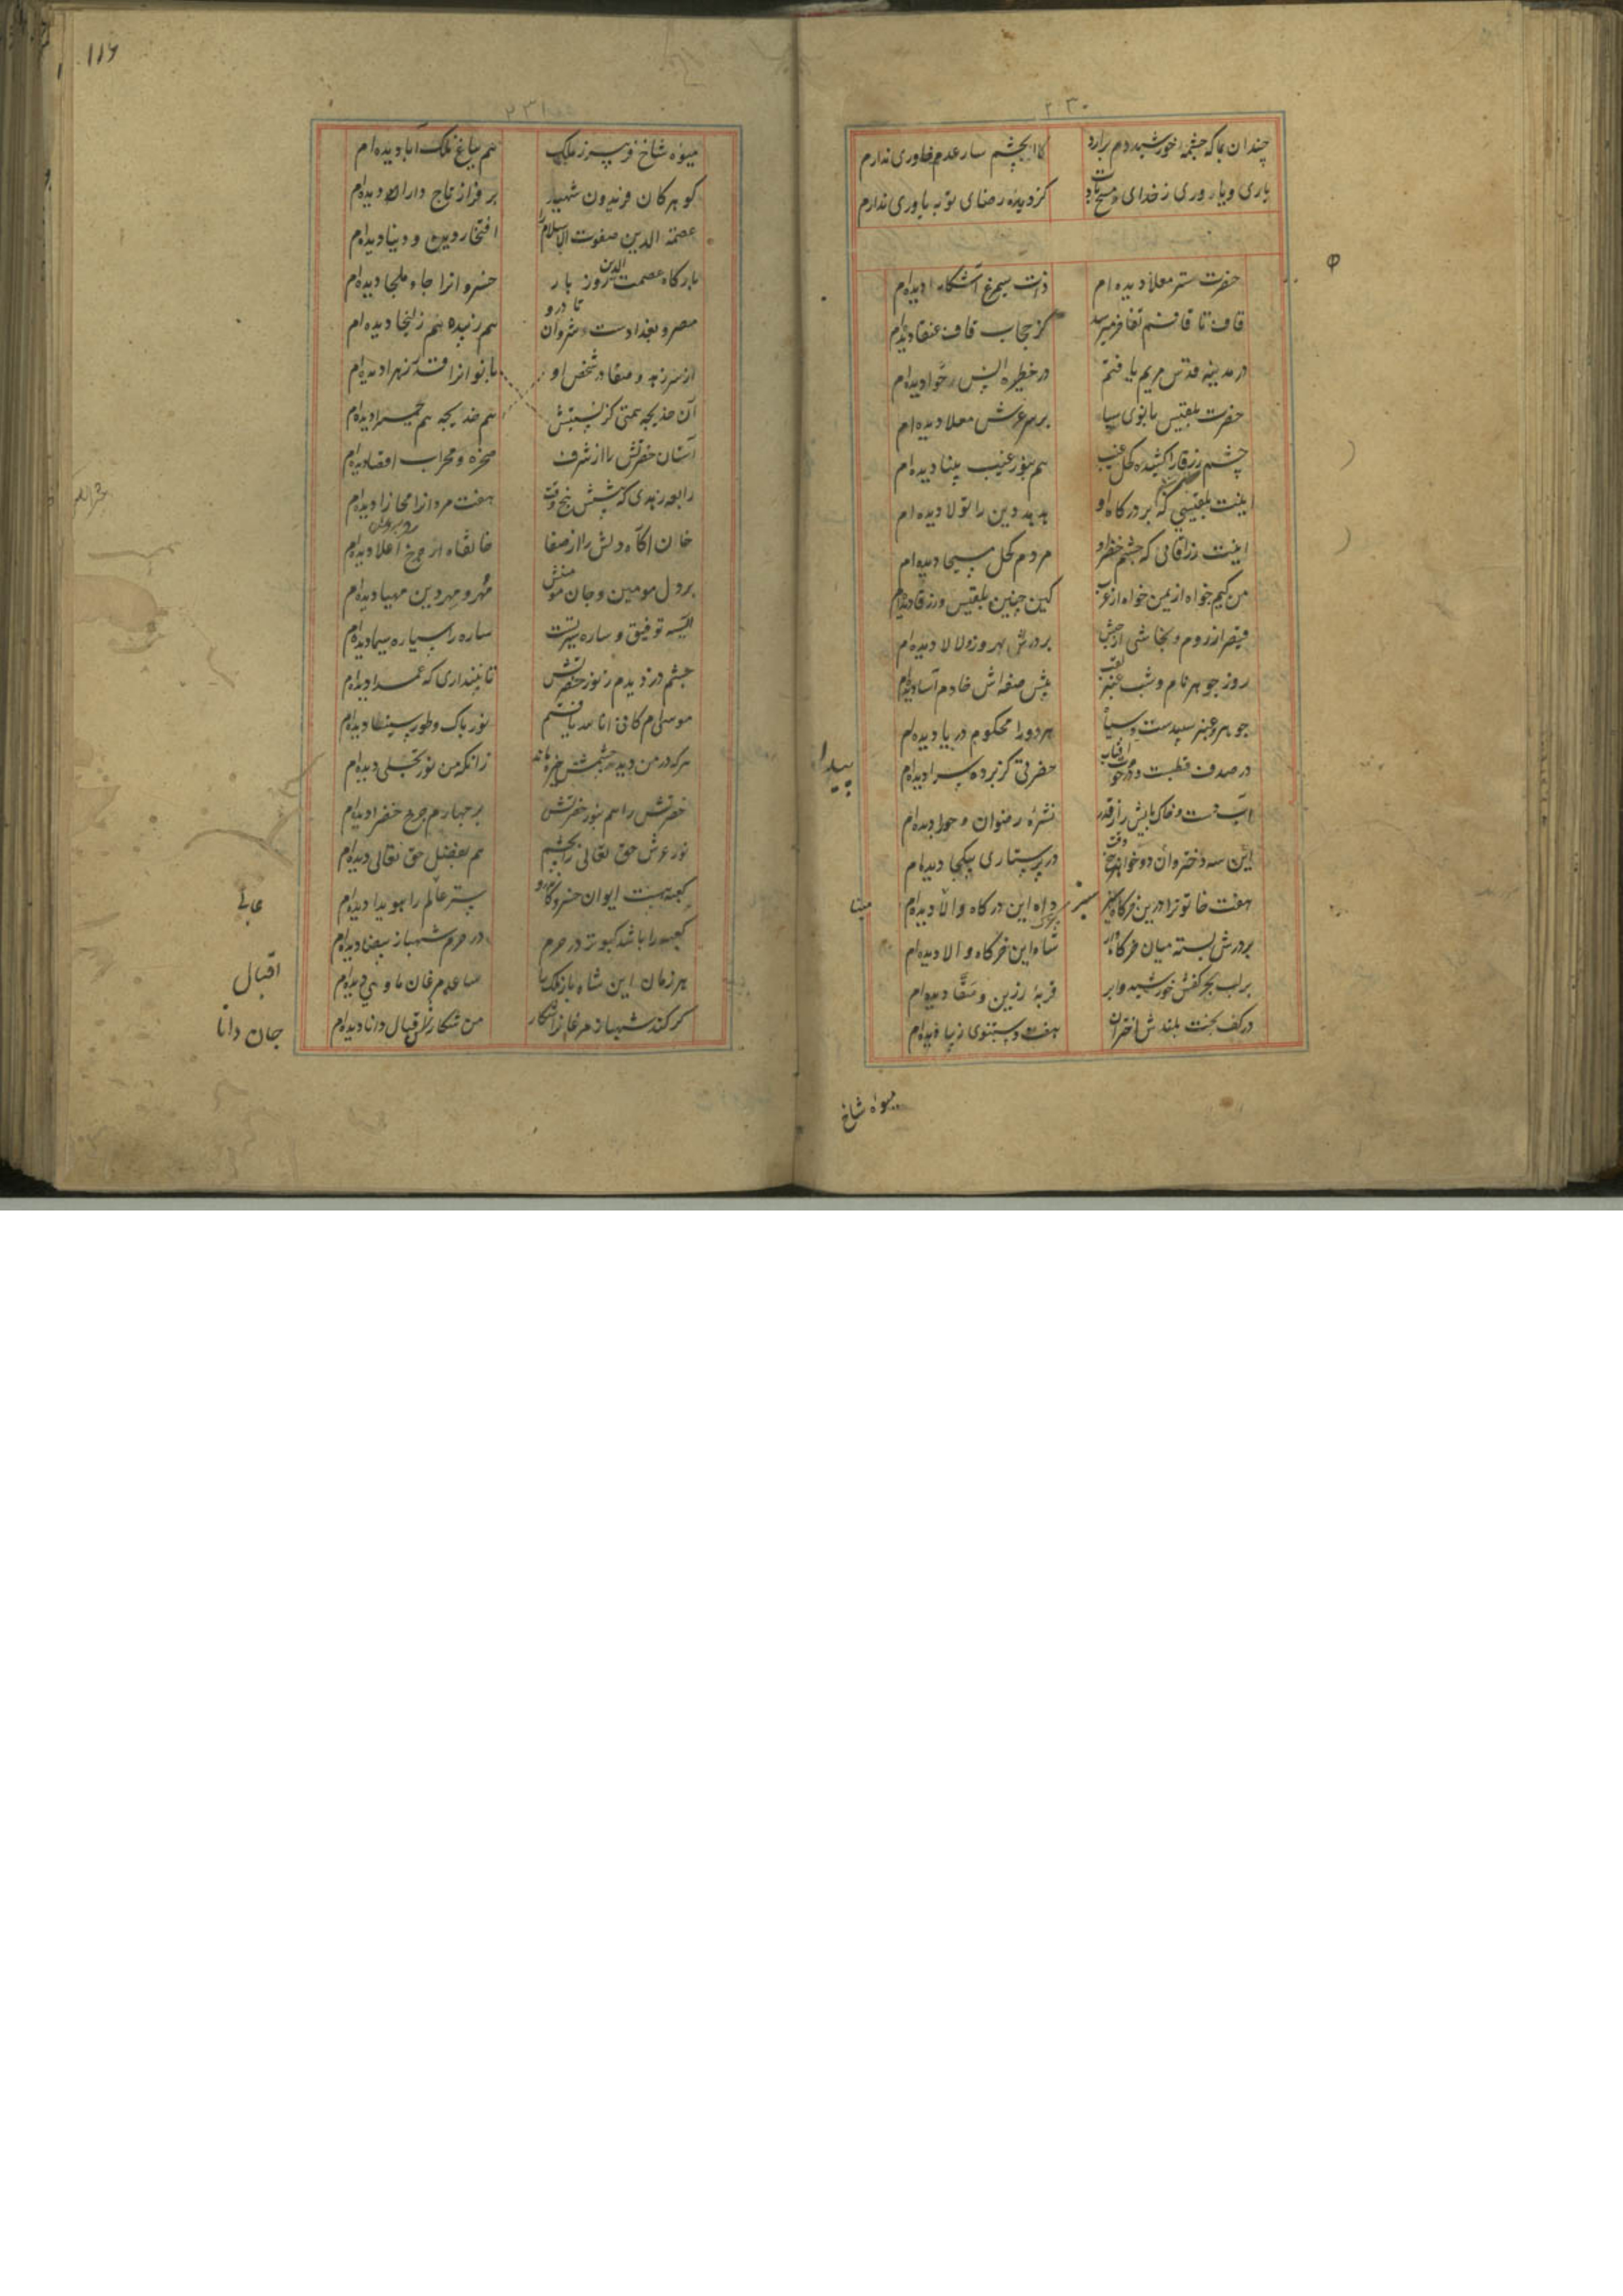 ۲۳۰
چندان بما که چشمه خورشید دم برارد کابچشم سار عدم خاوری ندارم
یاری و یاروری ز خدای و مسیح بادت کز دیده رضای تو به یاوری ندارم
حضرت ستر معلا دیده ام ذات سیمرغ آشکارا دیده‌ام
قاف تا قافم تفاخر میرسد کز حجاب قاف عنقا دیده‌ام
در مدینه قدس مریم یافتم در حظیره انس حوا دیده‌ام
حضرت بلقیس بانوی سبا بر سر عرش معلا دیده ام
چشم زرقا را کشیده کحل غیب هم بنور غیب بینا دیده ام
اینت بلقیسی که بر درگاه او هدهد دین را تولا دیده ام
اینت زرقائی که چشم خضر او مردم کحل مسیحا دیده‌ام
من کیم خواه از یمن خواه از عرب کین چنین بلقیس و زرقا دیده‌ام
قیصر از روم و نجاشی از حبش بر درش بهروز و لالا دیده‌ام
روز جوهر نام و شب عنبر لقب پیش صفه‌اش خادم آسا دیده‌ام
جوهر و عنبر سپیدست و سیاه هر دو را محکوم دریا دیده‌ام
در صدف قطبست و در حوت آفتاب حضرتی کز پرده پیدا دیده‌ام
آب دست و خاک پایش را ز قدر نشره رضوان و حورا دیده‌ام
این سه دختر وان دو خواهر پنج وقت در پرستاری بیکجا دیده ام
هفت خاتون را درین خرگاه سبز داه این درگاه والا دیده‌ام
بر درش بسته میان خرگاه وار شاه این خرگاه والا دیده‌ام
بر لب بحر کفش خورشید و ابر قربه زرین و سقا دیده‌ام
در کف بخت بلندش ز اختران هفت دستنبوی زیبا دیده‌ام
پیدا
مینا
سبز
میوه شاخ
۱۱۶
۲۳۱
میوه شاخ فریبرز ملک هم بباغ ملک آبا دیده ام
گوهر کان فریدون شهید بر فراز تاج دارا دیده‌ام
عصمة الدین صفوت الاسلام را افتخار دین و دنیا دیده‌ام
بارگاه عصمت الدین روز بار خسروانرا جاه و ملجا دیده ام
مصر و بغدادست شروان تا درو هم زبیده هم زلیخا دیده ام
از سر زهد و صفا در شخص او بانوانرا قدر زهرا دیده‌ام
آن خدیجه همتی کز نسبتش هم خدیجه هم حمیرا دیده‌ام
آستان حضرتش را از شرف صخره و محراب اقصا دیده‌ام
رابعه زهدی که پیشش پنج وقت هفت مردانرا مجارا دیده‌ام
خان آگاه دلش را از صفا خانقاه از چرخ اعلا دیده‌ام
بر دل مومین و جان مومنش مهر و مهر دین مهیا دیده‌ام
آسیه توفیق و ساره سیرتست ساره را سیاره سیما دیده‌ام
چشم دزدیدم ز نور حضرتش تا نپنداری که عمدا دیده‌ام
موسی‌ام کانی انا الله یافتم نور پاک و طور سینا دیده‌ام
هر که در من دید چشمش خیره ماند زانکه من نور تجلی دیده‌ام
حضرتش را هم بنور حضرتش بر چهارم چرخ خضرا دیده‌ام
نور عرش حق تعالی را بچشم هم بفضل حق تعالی دیده‌ام
کعبه هست ایوان خسرو کاندرو ستر عالی را هویدا دیده‌ام
کعبه را باشد کبوتر در حرم در حرم شهباز بیضا دیده‌ام
هر زمان این شاه باز ملک را ساعد مرغان ماوی دیده‌ام
گر کند شهباز مرغانرا شکار من شکارش اقبال دانا دیده‌ام
عالی
اقبال
جان دانا